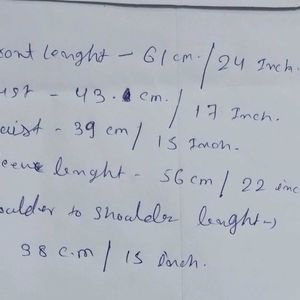 ront lenght - 61 cm. / 24 Inch.
ust - 43. cm. / 17 Inch.
aist - 39 cm / 15 Inch.
eeve lenght - 56 cm / 22 inc
oulder to shoulder lenght →
38 c.m / 15 Inch.